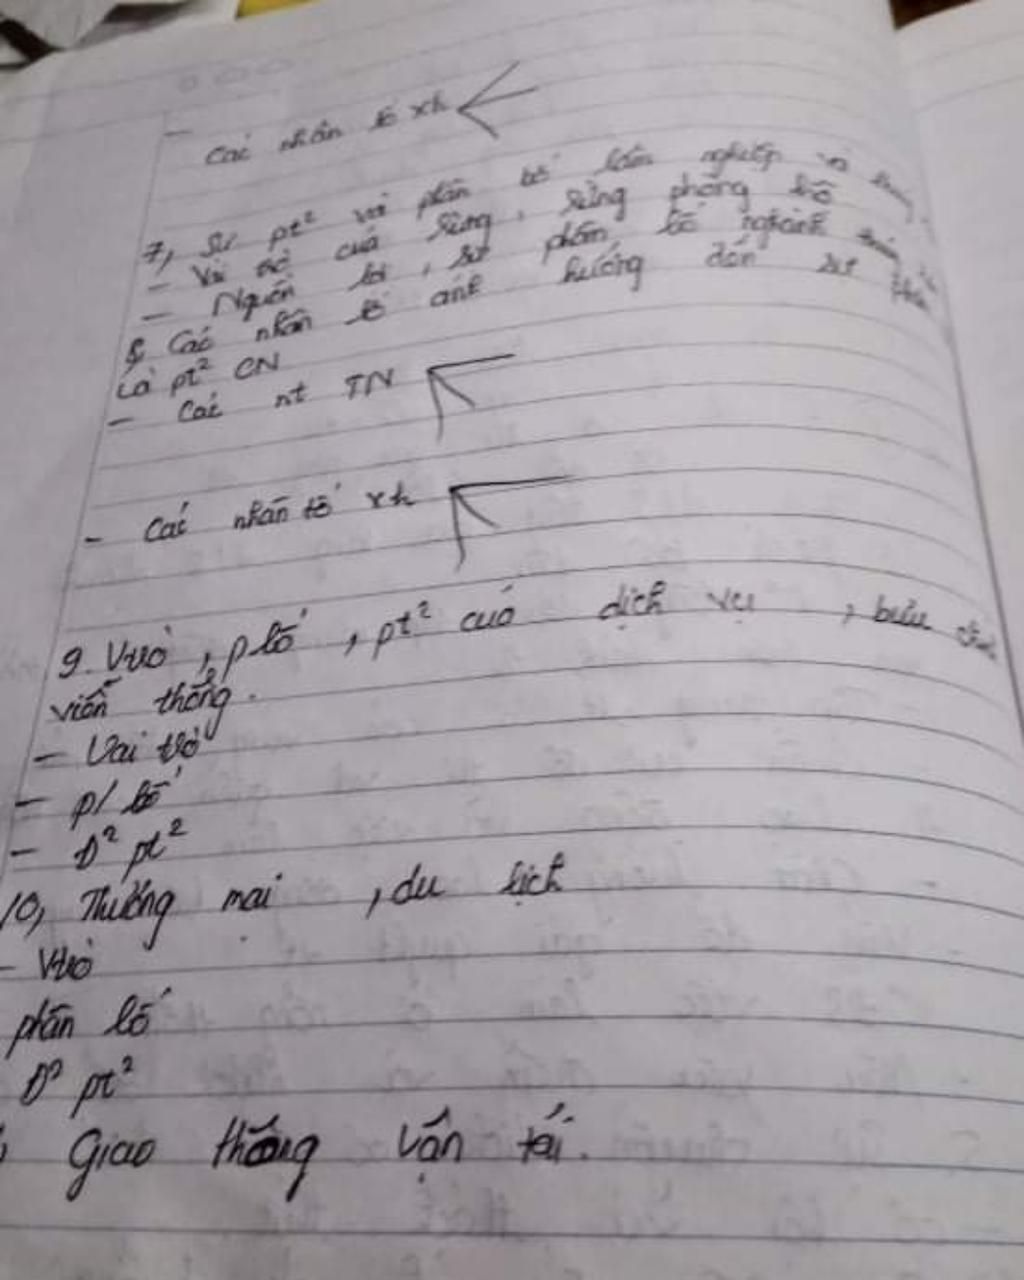 - Các nhân tố xh
7, Sự pt² và phân bố lâm nghiệp và
- Vai trò của rừng, rừng phòng hộ
- Nguồn lợi, sự phân bố ngành
8 Các nhân tố ảnh hưởng đến sự
và pt² CN
- Các nt TN
- Các nhân tố xh
9. Vtrò, p bố, pt² của dịch vụ, bưu
viễn thông.
- Vai trò
- p/ bố
- Đ² pt²
10, Thương mại, du lịch
- Vtrò
phân bố
Đ² pt²
Giao thông vận tải.